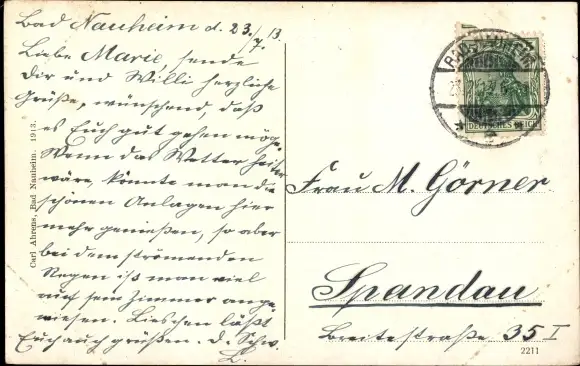 Bad Nauheim d. 23./7.13.
Liebe Marie, sende
Dir und Willi herzliche
Grüße, wünschend, daß
es Euch gut gehen möge.
Wenn das Wetter heiter
wäre, könnte man die
schönen Anlagen hier
mehr genießen, so aber
bei dem strömenden
Regen ist man viel
auf sein Zimmer ange-
wiesen. Lieschen läßt
Euch auch grüßen. D. Schw.
L.
Carl Ahrens, Bad Nauheim. 1913.
BAD-NAUHEIM
DEUTSCHES REICH
Frau M. Görner
Spandau
Breitestraße 35 I
2211